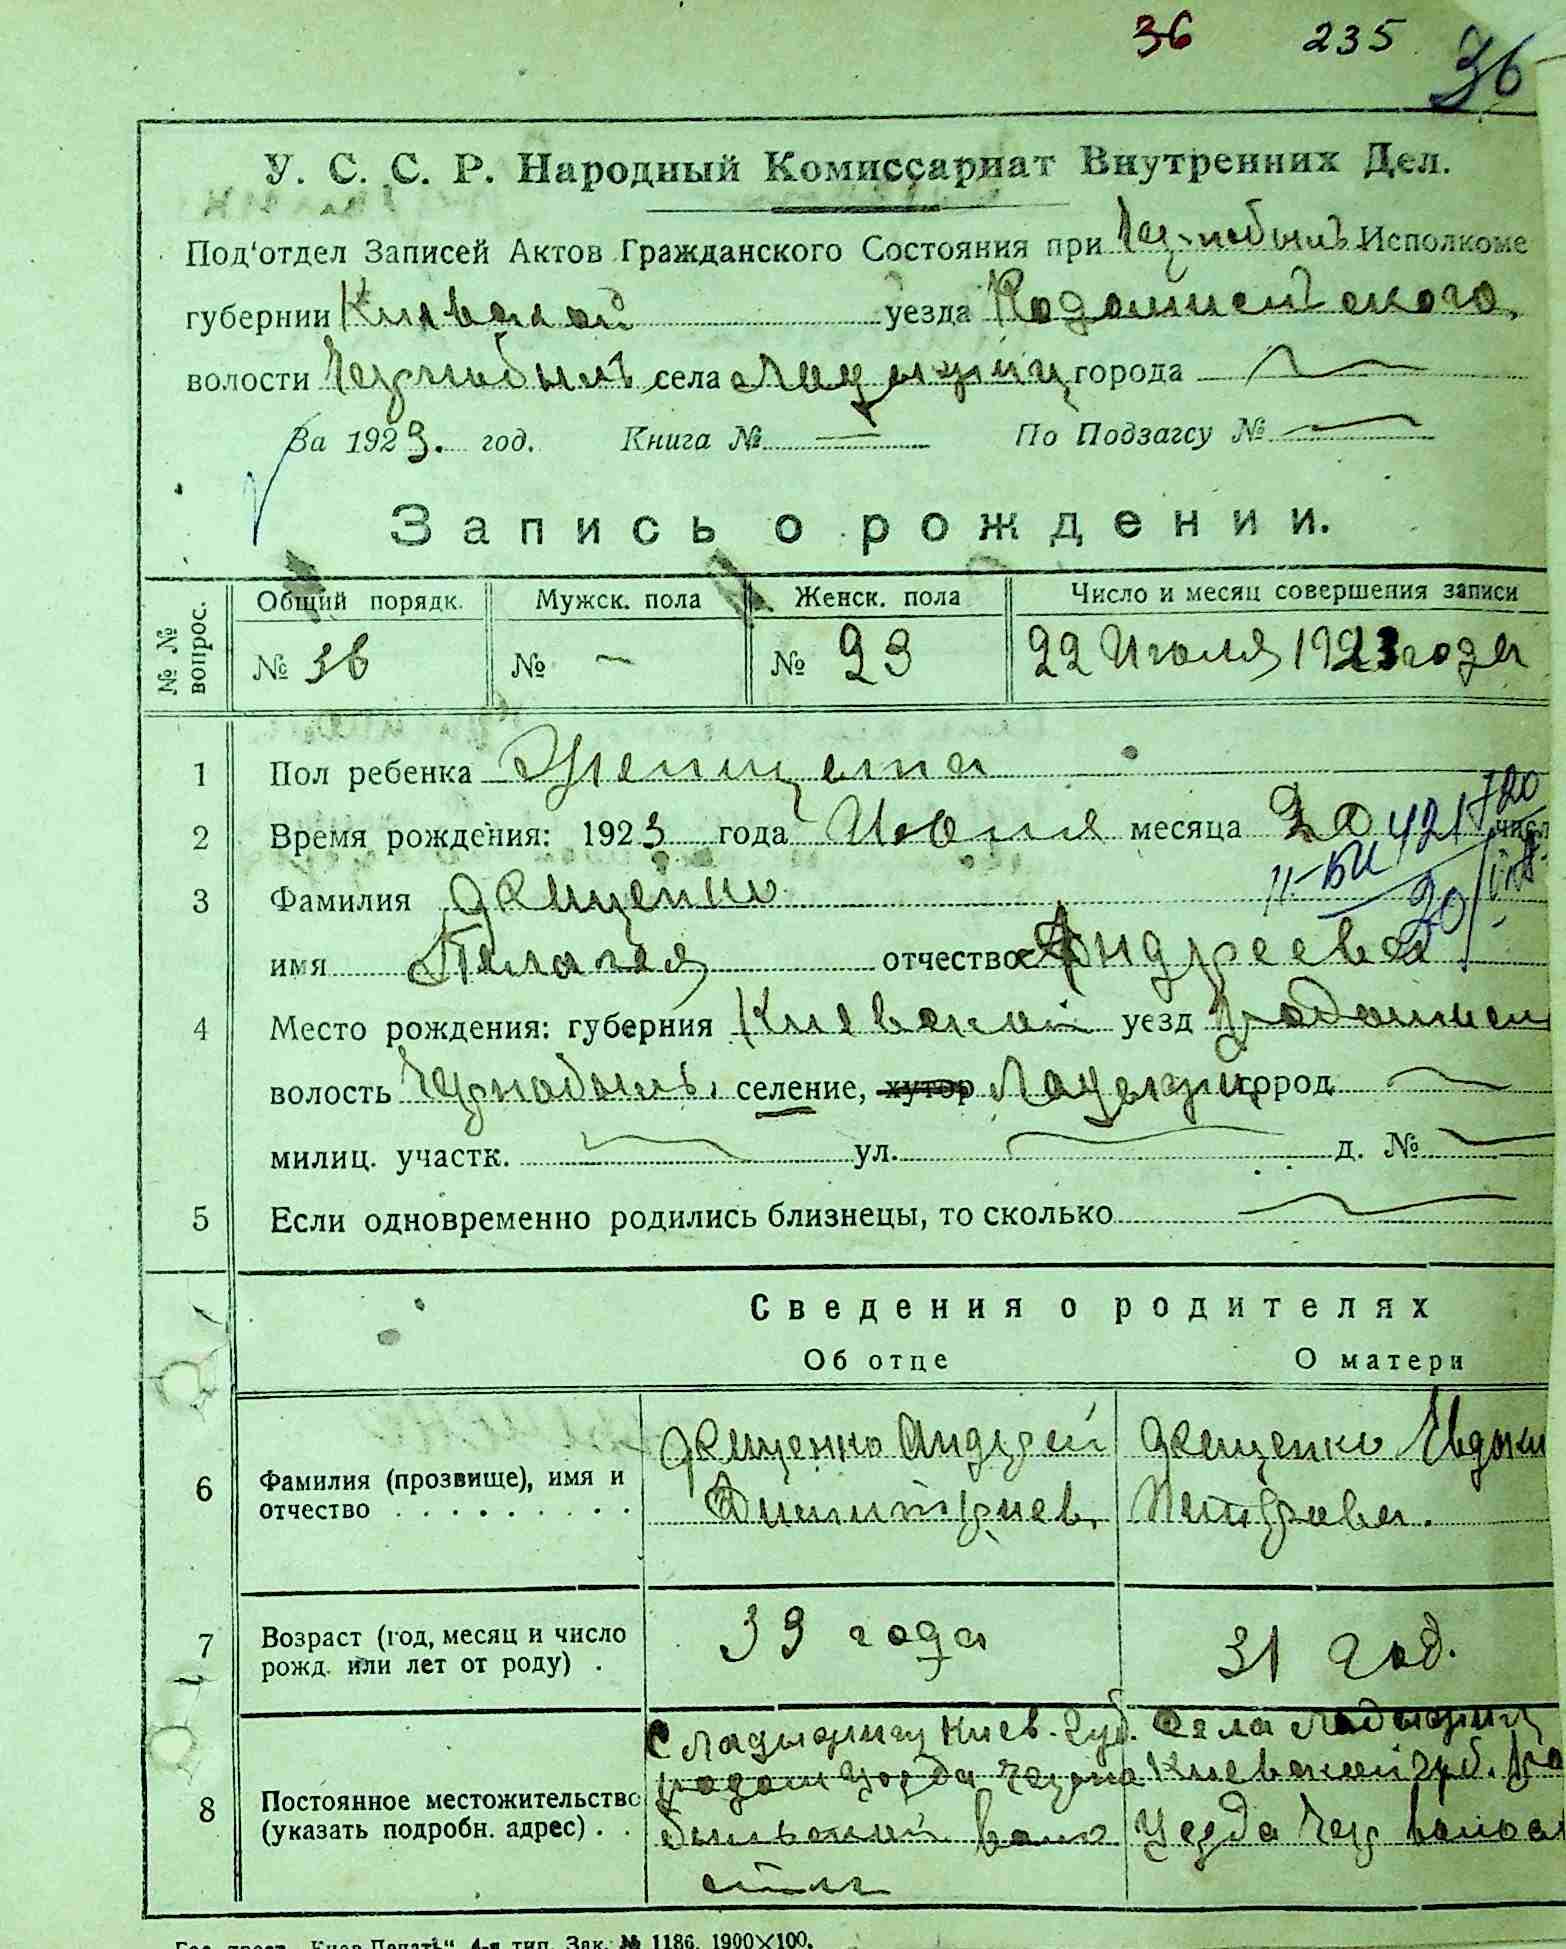 36 235 36
У. С. С. Р. Народный Комиссариат Внутренних Дел.
Под'отдел Записей Актов Гражданского Состояния при Исполкоме
губернии Киевской уезда Радомисльского,
волости Чернобыль села Ладыжичи города —
За 1923. год. Книга № — По Подзагсу № —
Запись о рождении.
№ № вопрос. Общий порядк. Мужск. пола Женск. пола Число и месяц совершения записи
№ 36 № — № 23 22 Июля 1923 года
1 Пол ребенка Женщена
2 Время рождения: 1923 года Июля месяца 20 числ
3 Фамилия Яещенко
имя Пелагея отчество Андреева
4 Место рождения: губерния Киевский уезд Радомисл
волость Чернобыль. селение, хутор Ладыжичи город —
милиц. участк. — ул. — д. № —
5 Если одновременно родились близнецы, то сколько —
Сведения о родителях
Об отце О матери
6 Фамилия (прозвище), имя и отчество Яещенко Андрей Дмитриев. Яещенко Евдоки Петрова.
7 Возраст (год, месяц и число рожд. или лет от роду) . 39 года 31 год.
8 Постоянное местожительство (указать подробн. адрес) . . С Ладыжичи Киев. губ. Радом уезда Чернобыльской волости Села Ладыжичи Киевской губ. Ра уезда Чер волос
Гос. трест „Киев-Печать“ 4-я тип. Зак. № 1186. 1900×100.